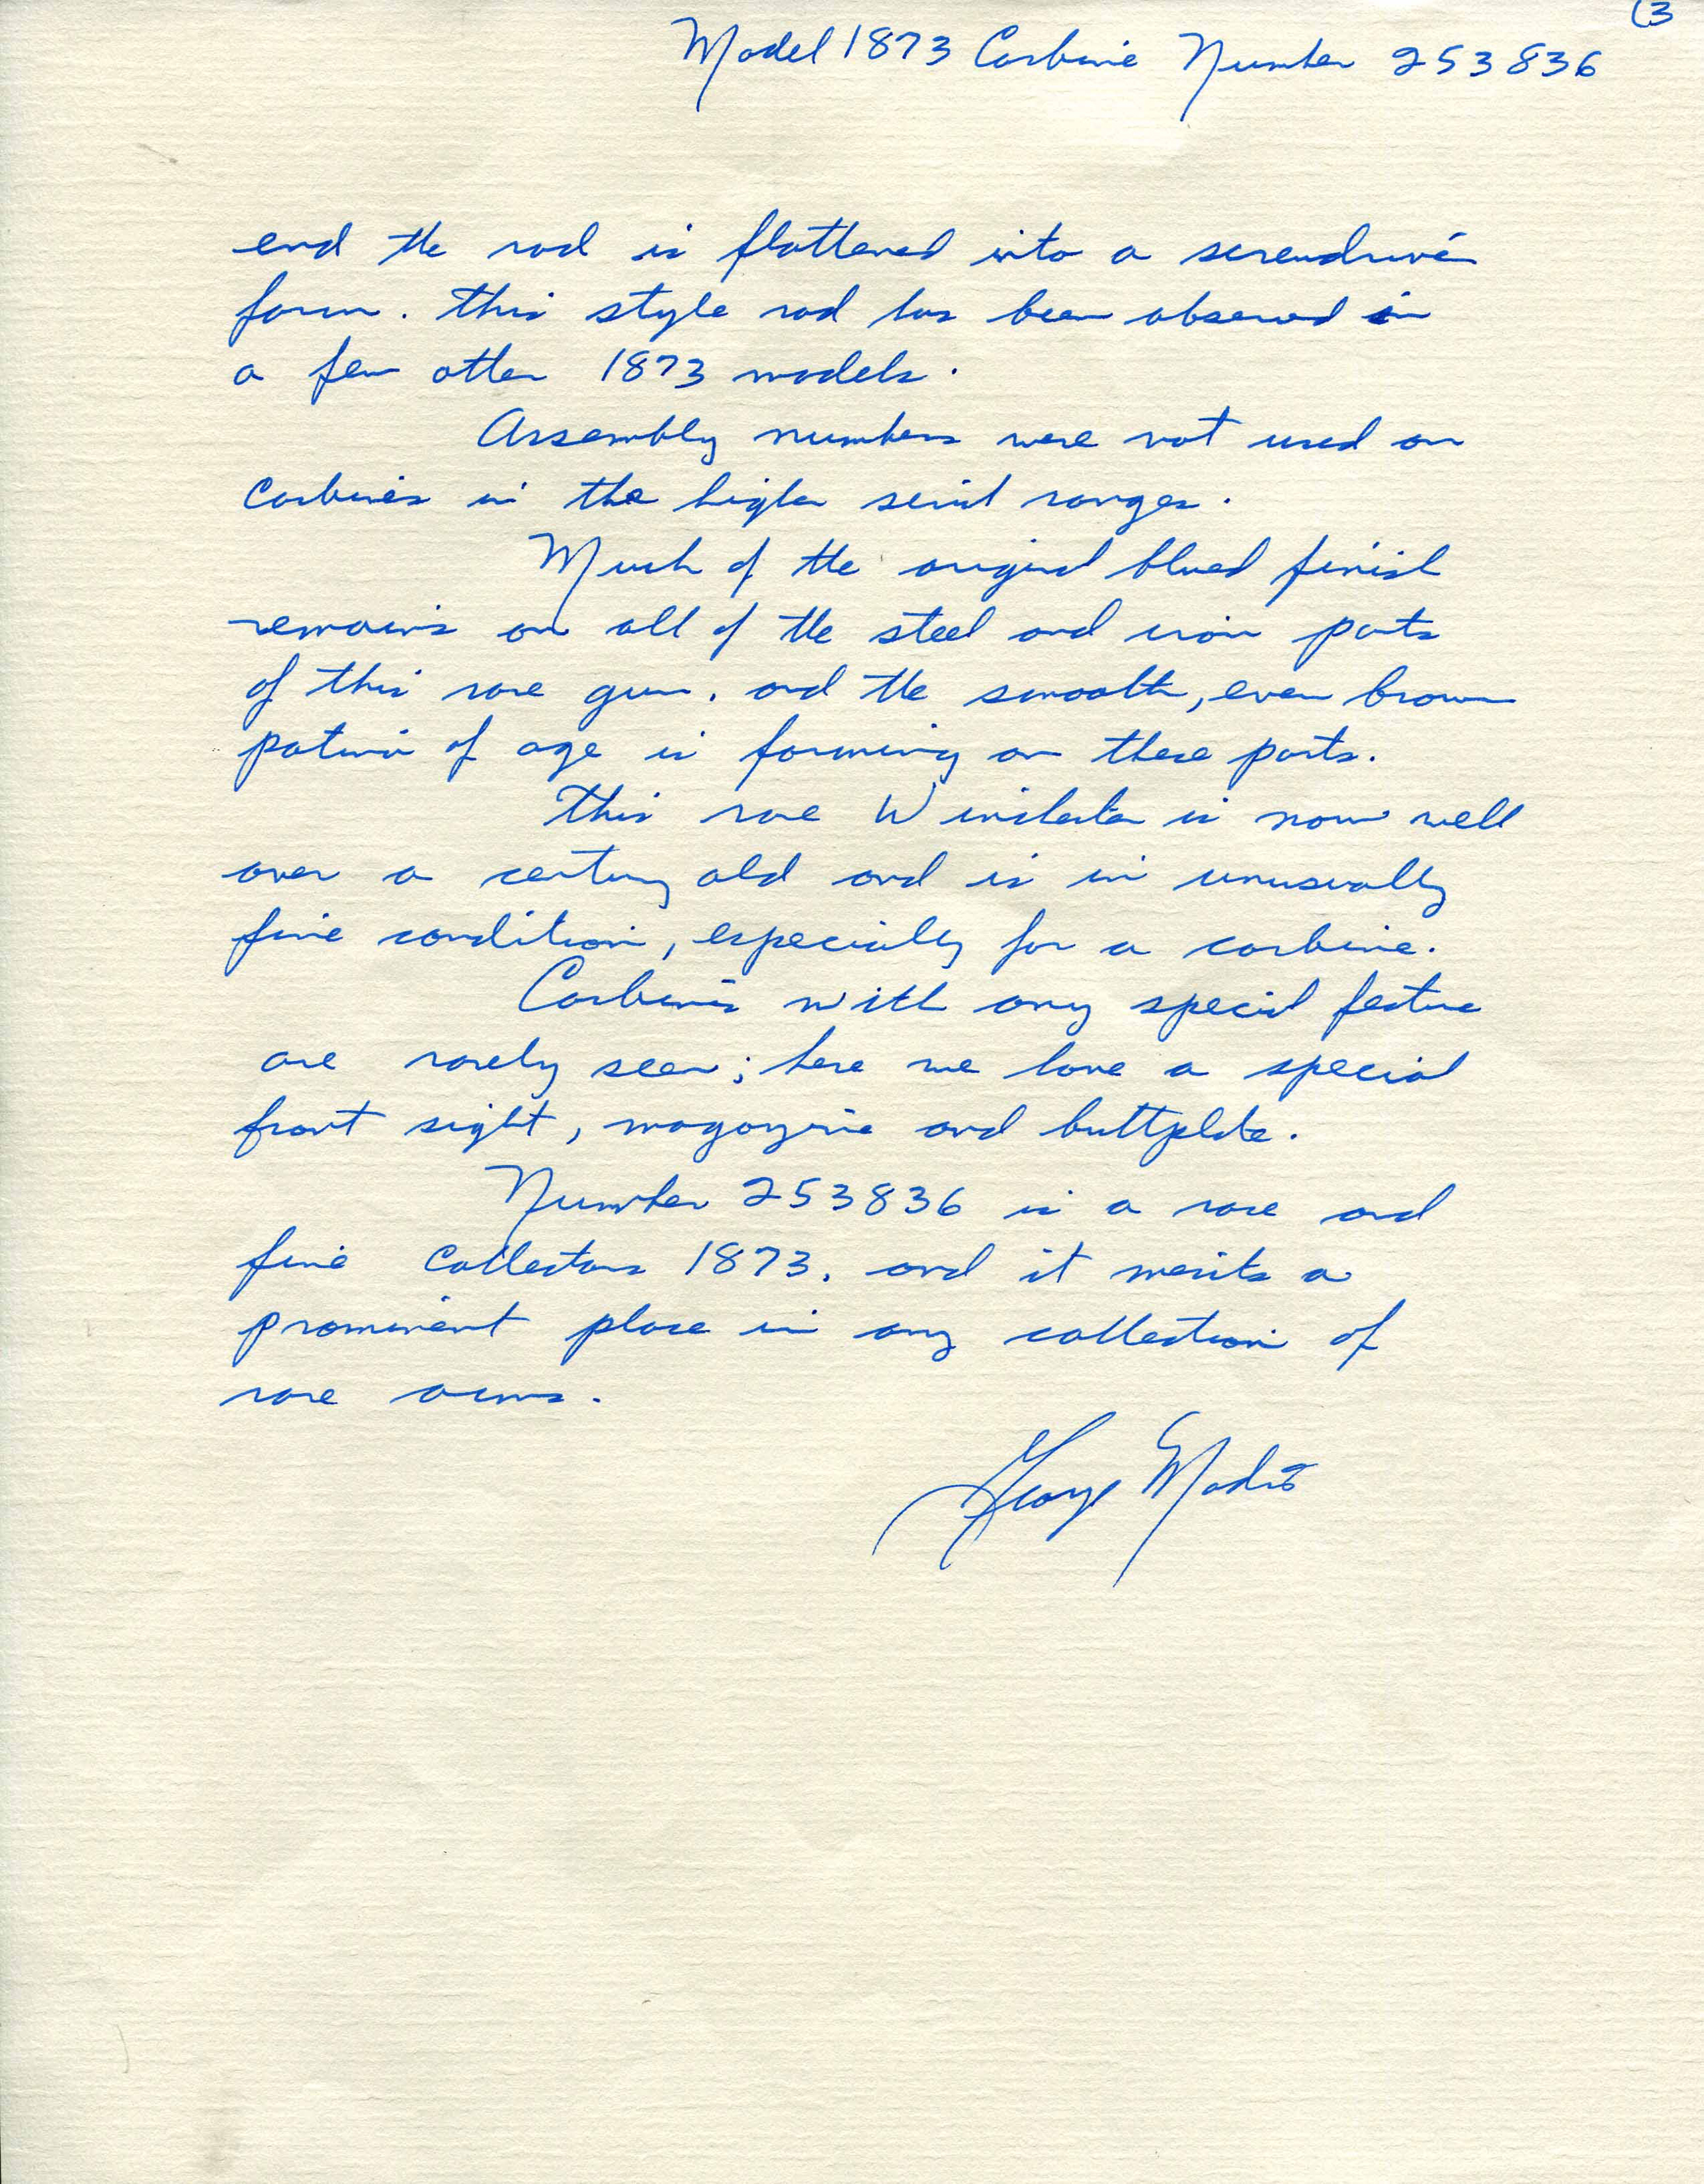 (3
Model 1873 Carbine Number 253836
end the rod is flattened into a screwdriver
form. This style rod has been observed in
a few other 1873 models.
Assembly numbers were not used on
Carbines in the higher serial ranges.
Much of the original blued finish
remains on all of the steel and iron parts
of this rare gun, and the smooth, even brown
patina of age is forming on these parts.
This rare Winchester is now well
over a century old and is in unusually
fine condition, especially for a carbine.
Carbines with any special feature
are rarely seen; here we have a special
front sight, magazine and buttplate.
Number 253836 is a rare and
fine Collectors 1873, and it merits a
prominent place in any collection of
rare arms.
George Madis